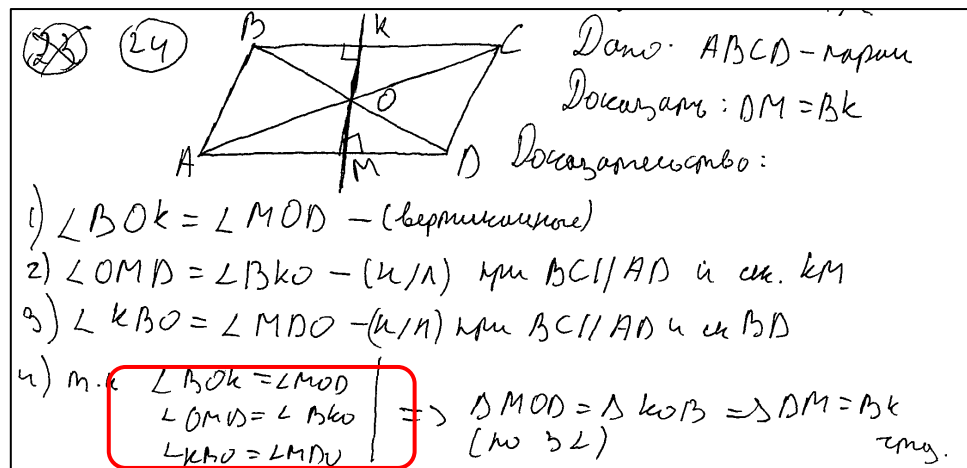 23 24
B K C
O
A M D
Дано: ABCD – парал
Доказать: DM = BK
Доказательство:
1) ∠BOK = ∠MOD – (вертикальные)
2) ∠OMD = ∠BKO – (н/л) при BC//AD и сек. KM
3) ∠KBO = ∠MDO – (н/л) при BC//AD и сек BD
4) т.к ∠BOK = ∠MOD
∠OMD = ∠BKO
∠KBO = ∠MDO
=> ΔMOD = ΔKOB => DM = BK
(по 3∠) чтд.